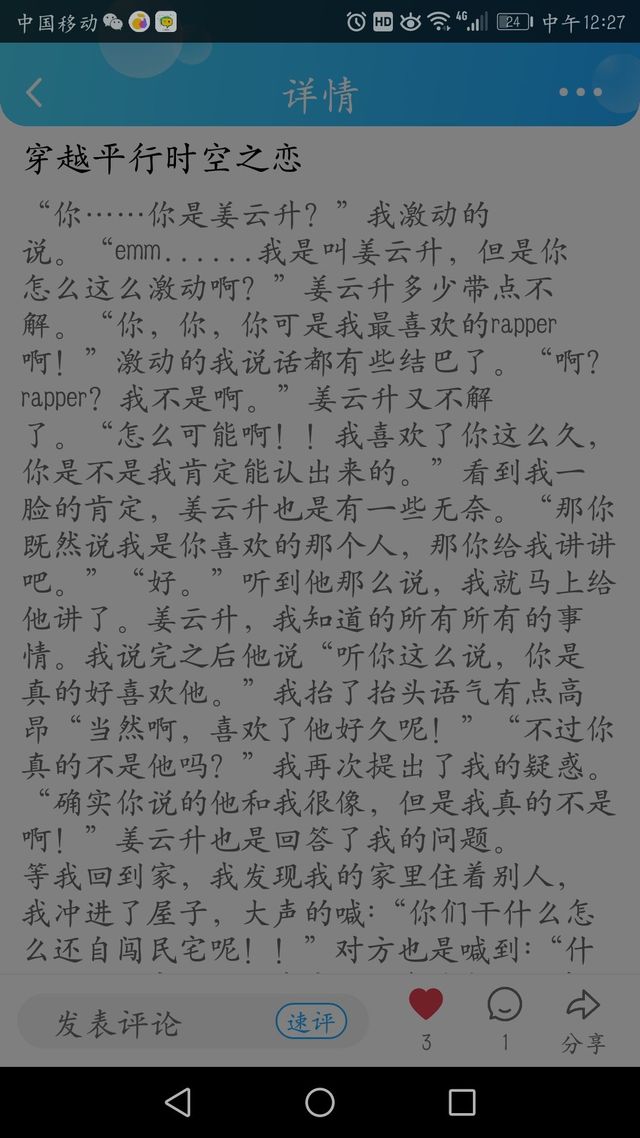 中国移动 HD 4G 24 中午12:27
详情
穿越平行时空之恋
“你……你是姜云升？”我激动的
说。“emm......我是叫姜云升，但是你
怎么这么激动啊？”姜云升多少带点不
解。“你，你，你可是我最喜欢的rapper
啊！”激动的我说话都有些结巴了。“啊？
rapper？我不是啊。”姜云升又不解
了。“怎么可能啊！！我喜欢了你这么久，
你是不是我肯定能认出来的。”看到我一
脸的肯定，姜云升也是有一些无奈。“那你
既然说我是你喜欢的那个人，那你给我讲讲
吧。”“好。”听到他那么说，我就马上给
他讲了。姜云升，我知道的所有所有的事
情。我说完之后他说“听你这么说，你是
真的好喜欢他。”我抬了抬头语气有点高
昂“当然啊，喜欢了他好久呢！”“不过你
真的不是他吗？”我再次提出了我的疑惑。
“确实你说的他和我很像，但是我真的不是
啊！”姜云升也是回答了我的问题。
等我回到家，我发现我的家里住着别人，
我冲进了屋子，大声的喊：“你们干什么怎
么还自闯民宅呢！！”对方也是喊到：“什
发表评论 速评 3 1 分享